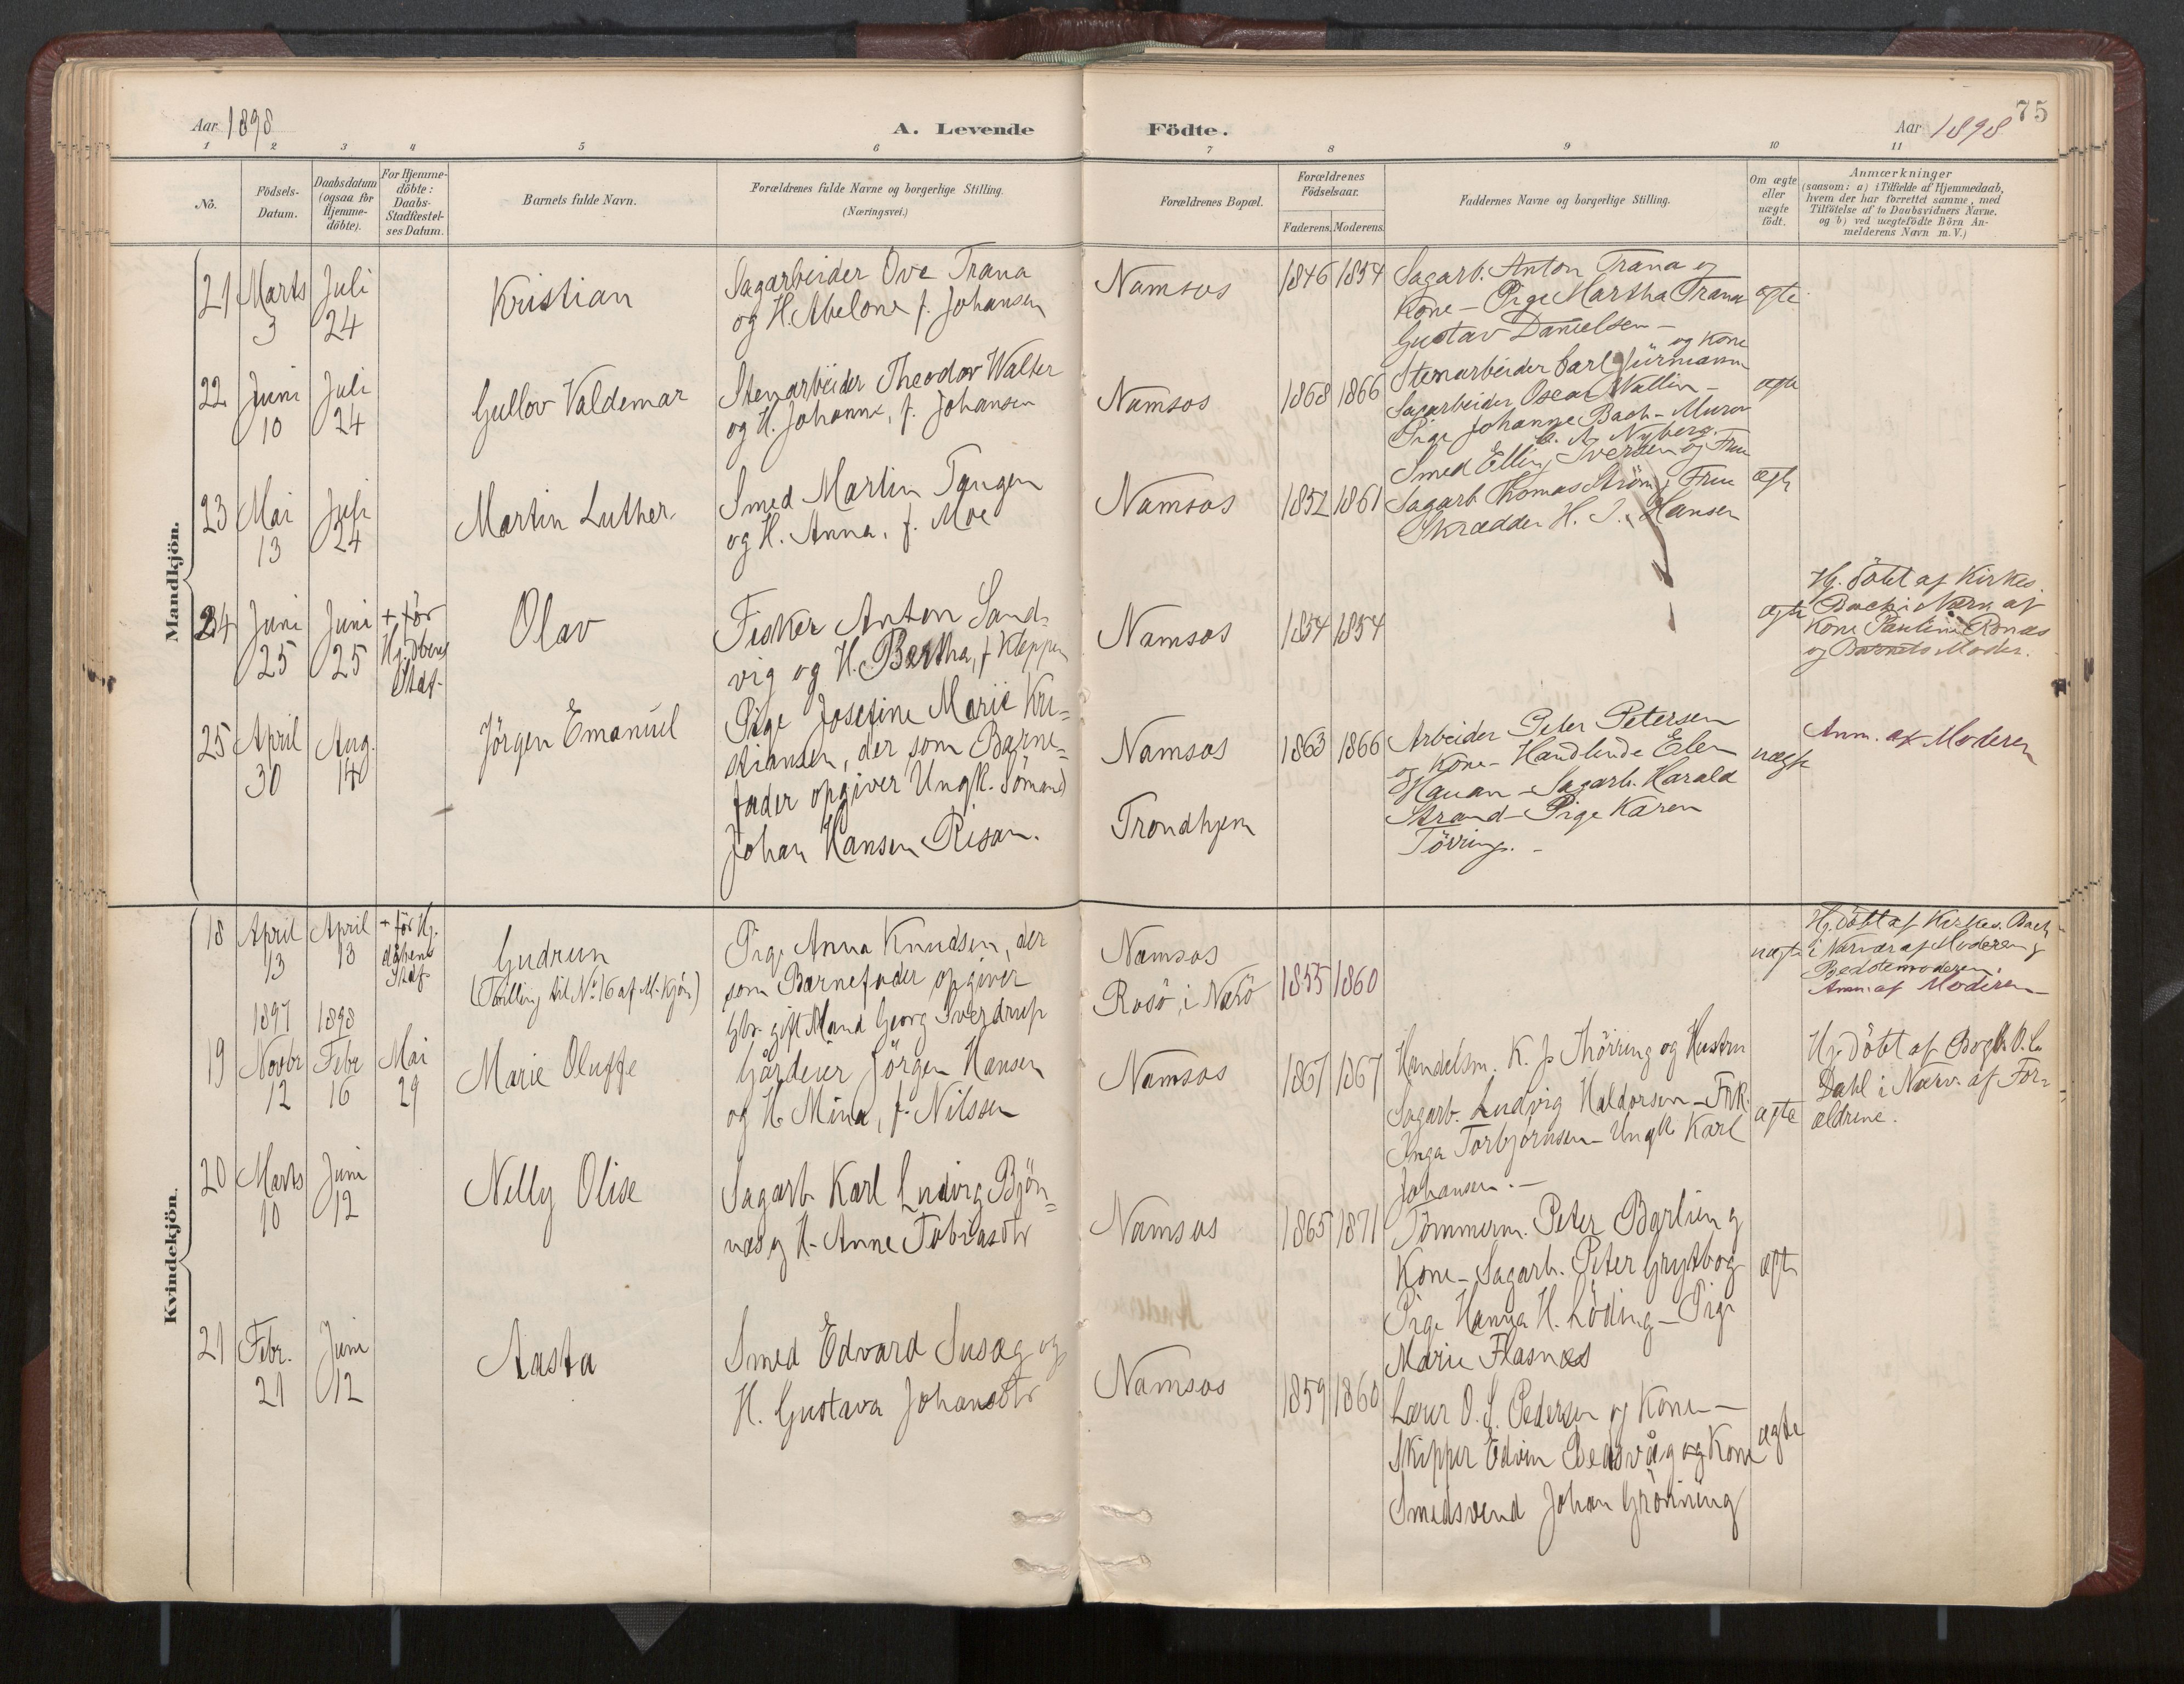 75
Aar 1898
A. Levende Födte.
Aar 1898
1 2 3 4 5 6 7 8 9 10 11
No.
Födsels-
Datum.
Daabsdatum
(ogsaa for
Hjemme-
döbte).
For Hjemme-
döbte:
Daabs-
Stadfæstel-
ses Datum.
Barnets fulde Navn.
Forældrenes fulde Navne og borgerlige Stilling.
(Næringsvei.)
Forældrenes Bopæl.
Forældrenes
Födselsaar.
Faderens. Moderens.
Faddernes Navne og borgerlige Stilling.
Om ægte
eller
uægte
födt.
Anmærkninger
(saasom: a) i Tilfælde af Hjemmedaab,
hvem der har forrettet samme, med
Tilföielse af to Daabsvidners Navne.
og b) ved uægtefödte Börn An-
melderens Navn m. V.)
Mandkjön.
21 Marts
3
Juli
24
Kristian
Sagarbeider Ove Trana
og H. Abelone f. Johansen
Namsos
1846 1854
Sagarb. Anton Trana og
Kone - Pige Martha Trana
Gustav Danielsen -
ægte
22 Juni
10
Juli
24
Gullov Valdemar
Stenarbeider Theodor Walter
og H. Johanne, f. Johansen
Namsos
1868 1866
og Kone
Stenarbeider Carl Jürmann
Sagarbeider Oscar Wallin -
Pige Johanne Bach - Murer
C. A. Nyberg.
ægte
23 Mai
13
Juli
24
Martin Luther.
Smed Martin Tangen
og H. Anna, f. Moe
Namsos
1852 1861
Smed Elling Iversen og Frue
Sagarb. Thomas Ström, Frue
Skrædder H. J. Hansen
ægte
24 Juni
25
Juni
25
+ för
Hj. dbens
Stadf.
Olav
Fisker Anton Sand-
vig og H. Bertha, f. Kleppen
Namsos
1854 1854
ægte
Hj. döbt af Kirkes.
Bach i Nærv. af
Kone Pauline Rönæs
og Barnets Moder.
25 April
30
Aug.
14
Jörgen Emanuel
Pige Josefine Marie Kri-
stiansen, der som Barne-
fader opgiver Ungk. Sömand
Johan Hansen Risan.
Namsos
Trondhjem
1863 1866
Arbeider Peter Petersen
og Kone - Handlende Elen
Hauan - Sagarb. Harald
Strand - Pige Karen
Törring. -
uægte
Anm. af Moderen
Kvindekjön.
18 April
13
April
13
+ för Hj.
döbens
Stadf.
Gudrun
(Tvilling til No 16 af M. Kjön)
Pige Anna Knudsen, der
som Barnefader opgiver
Gbr. gift Mand Georg Sverdrup
Namsos
Rosö i Nærö
1855 1860
uægte
Hj. döbt af Kirkes. Bach
i Nærvær af Moderen og
Bedstemoderen.
Anm. af Moderen
19 1897
Novbr
12
1898
Febr
16
Mai
29
Marie Oluffe
Gårdeier Jörgen Hansen
og H. Mina, f. Nilssen
Namsos
1867 1867
Handelsm. K. J. Thörring og Hustru
Sagarb. Ludvig Haldorsen - Frk.
Inga Torbjörnsen - Ungk. Karl
Johansen. -
ægte
Hj. döbt af Bogh. O. L.
Dahl i Nærv. af For-
ældrene.
20 Marts
10
Juni
12
Nelly Olise
Sagarb. Karl Ludvig Björ-
næs og H. Anne Tobiasdtr
Namsos
1865 1871
Tömmerm. Peter Barlien og
Kone - Sagarb. Peter Grytbog
Pige Hanna H. Löding - Pige
Marie Flasnæs
ægte
21 Febr.
21
Juni
12
Aasta
Smed Edvard Susæg og
H. Gustava Johansdtr
Namsos
1859 1860
Lærer O. S. Pedersen og Kone -
Skipper Edvin Bedsvåg og Kone
Smedsvend Johan Grönning
ægte